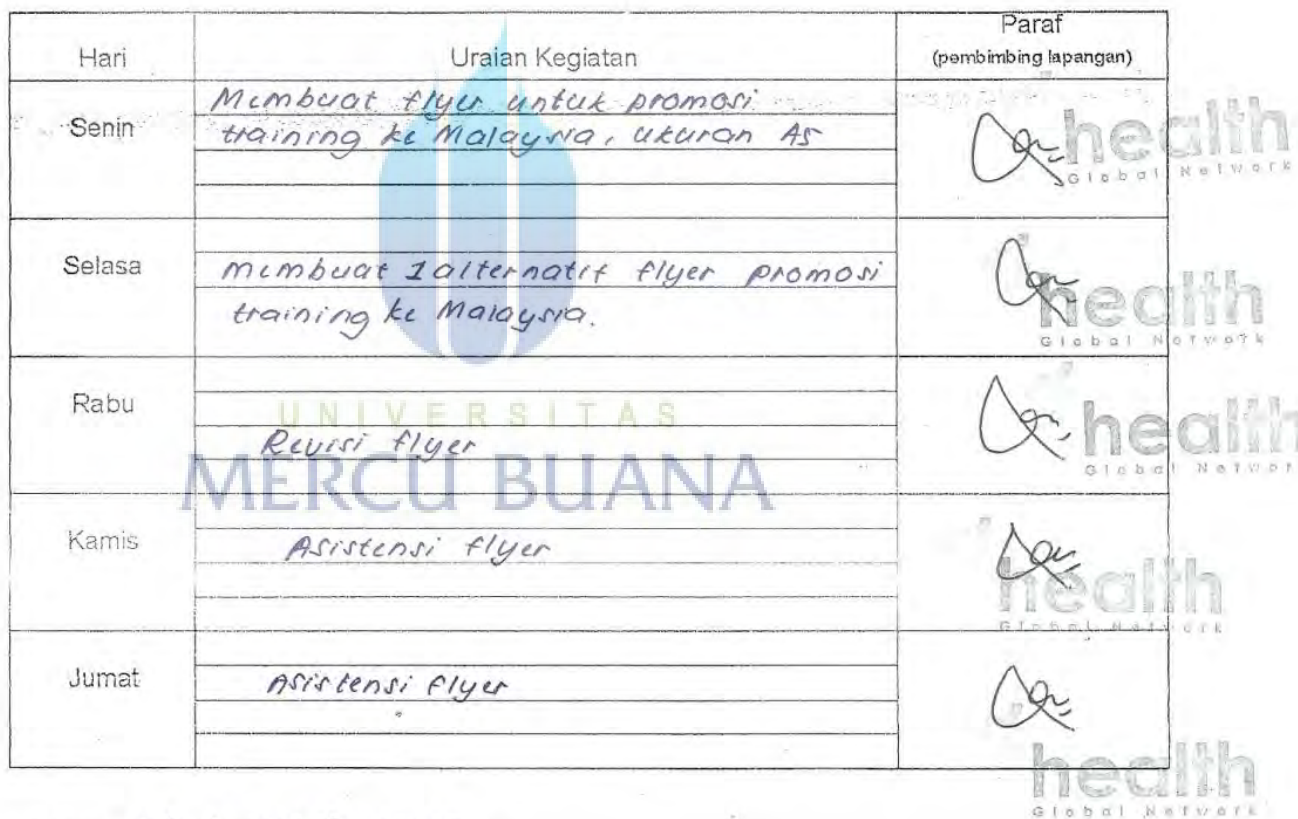 Hari
Uraian Kegiatan
Paraf
(pembimbing lapangan)
Senin
Membuat flyer untuk promosi
training ke Malaysia, ukuran A5
health
Global Network
Selasa
membuat 1 alternatif flyer promosi
training ke Malaysia.
health
Global Network
Rabu
UNIVERSITAS
Revisi flyer
MERCU BUANA
health
Global Network
Kamis
Asistensi flyer
health
Global Network
Jumat
Asistensi flyer
health
Global Network